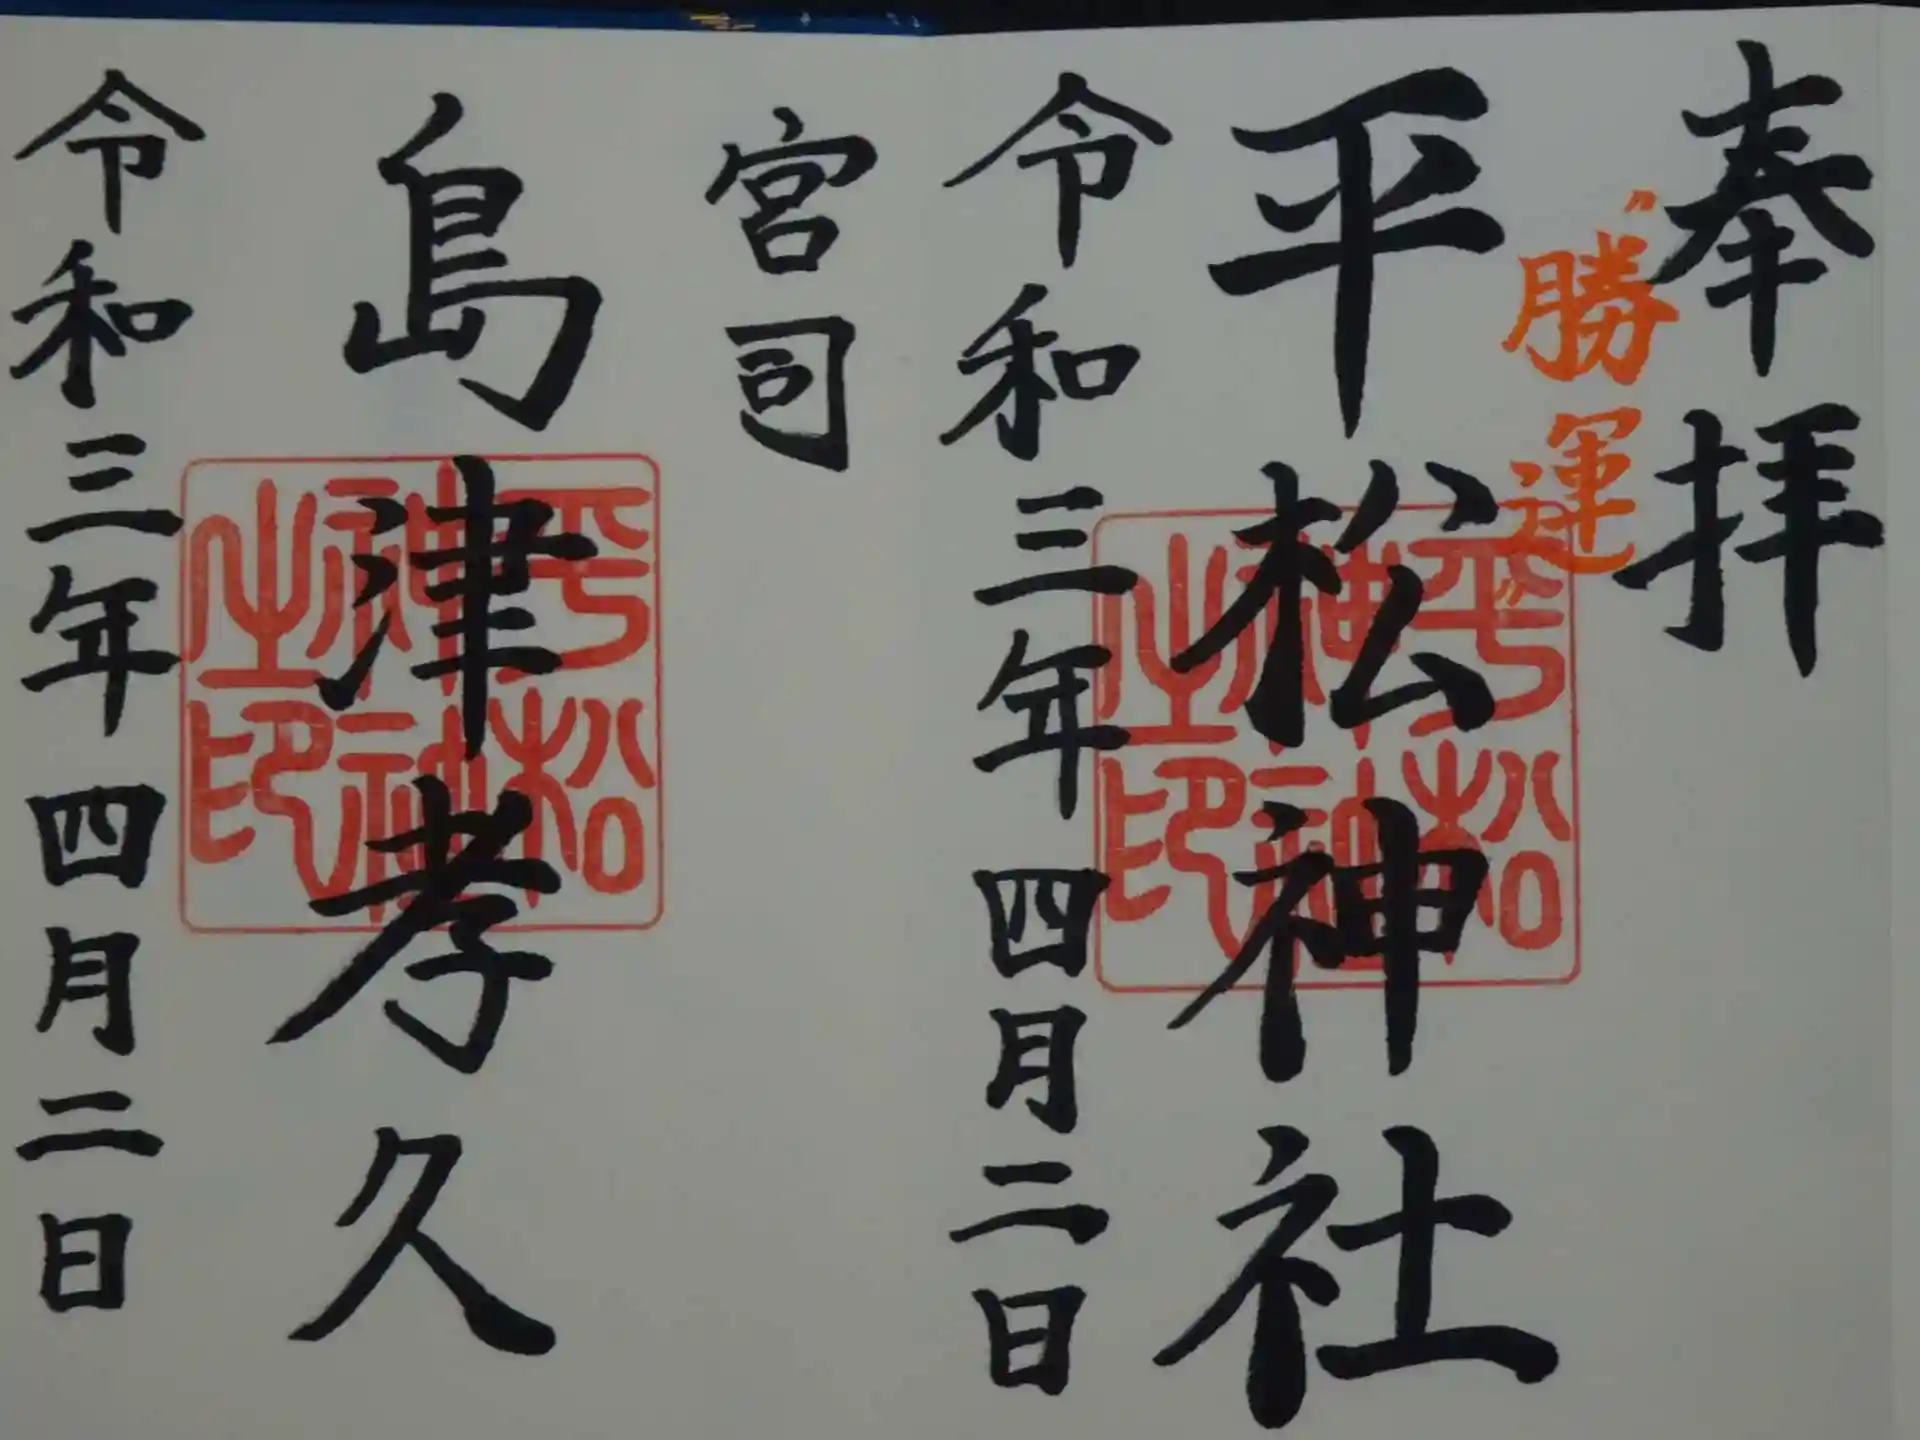 奉拝
〝勝運〟
平松神社
平松神社神之印
令和三年四月二日
宮司
島津孝久
平松神社神之印
令和三年四月二日